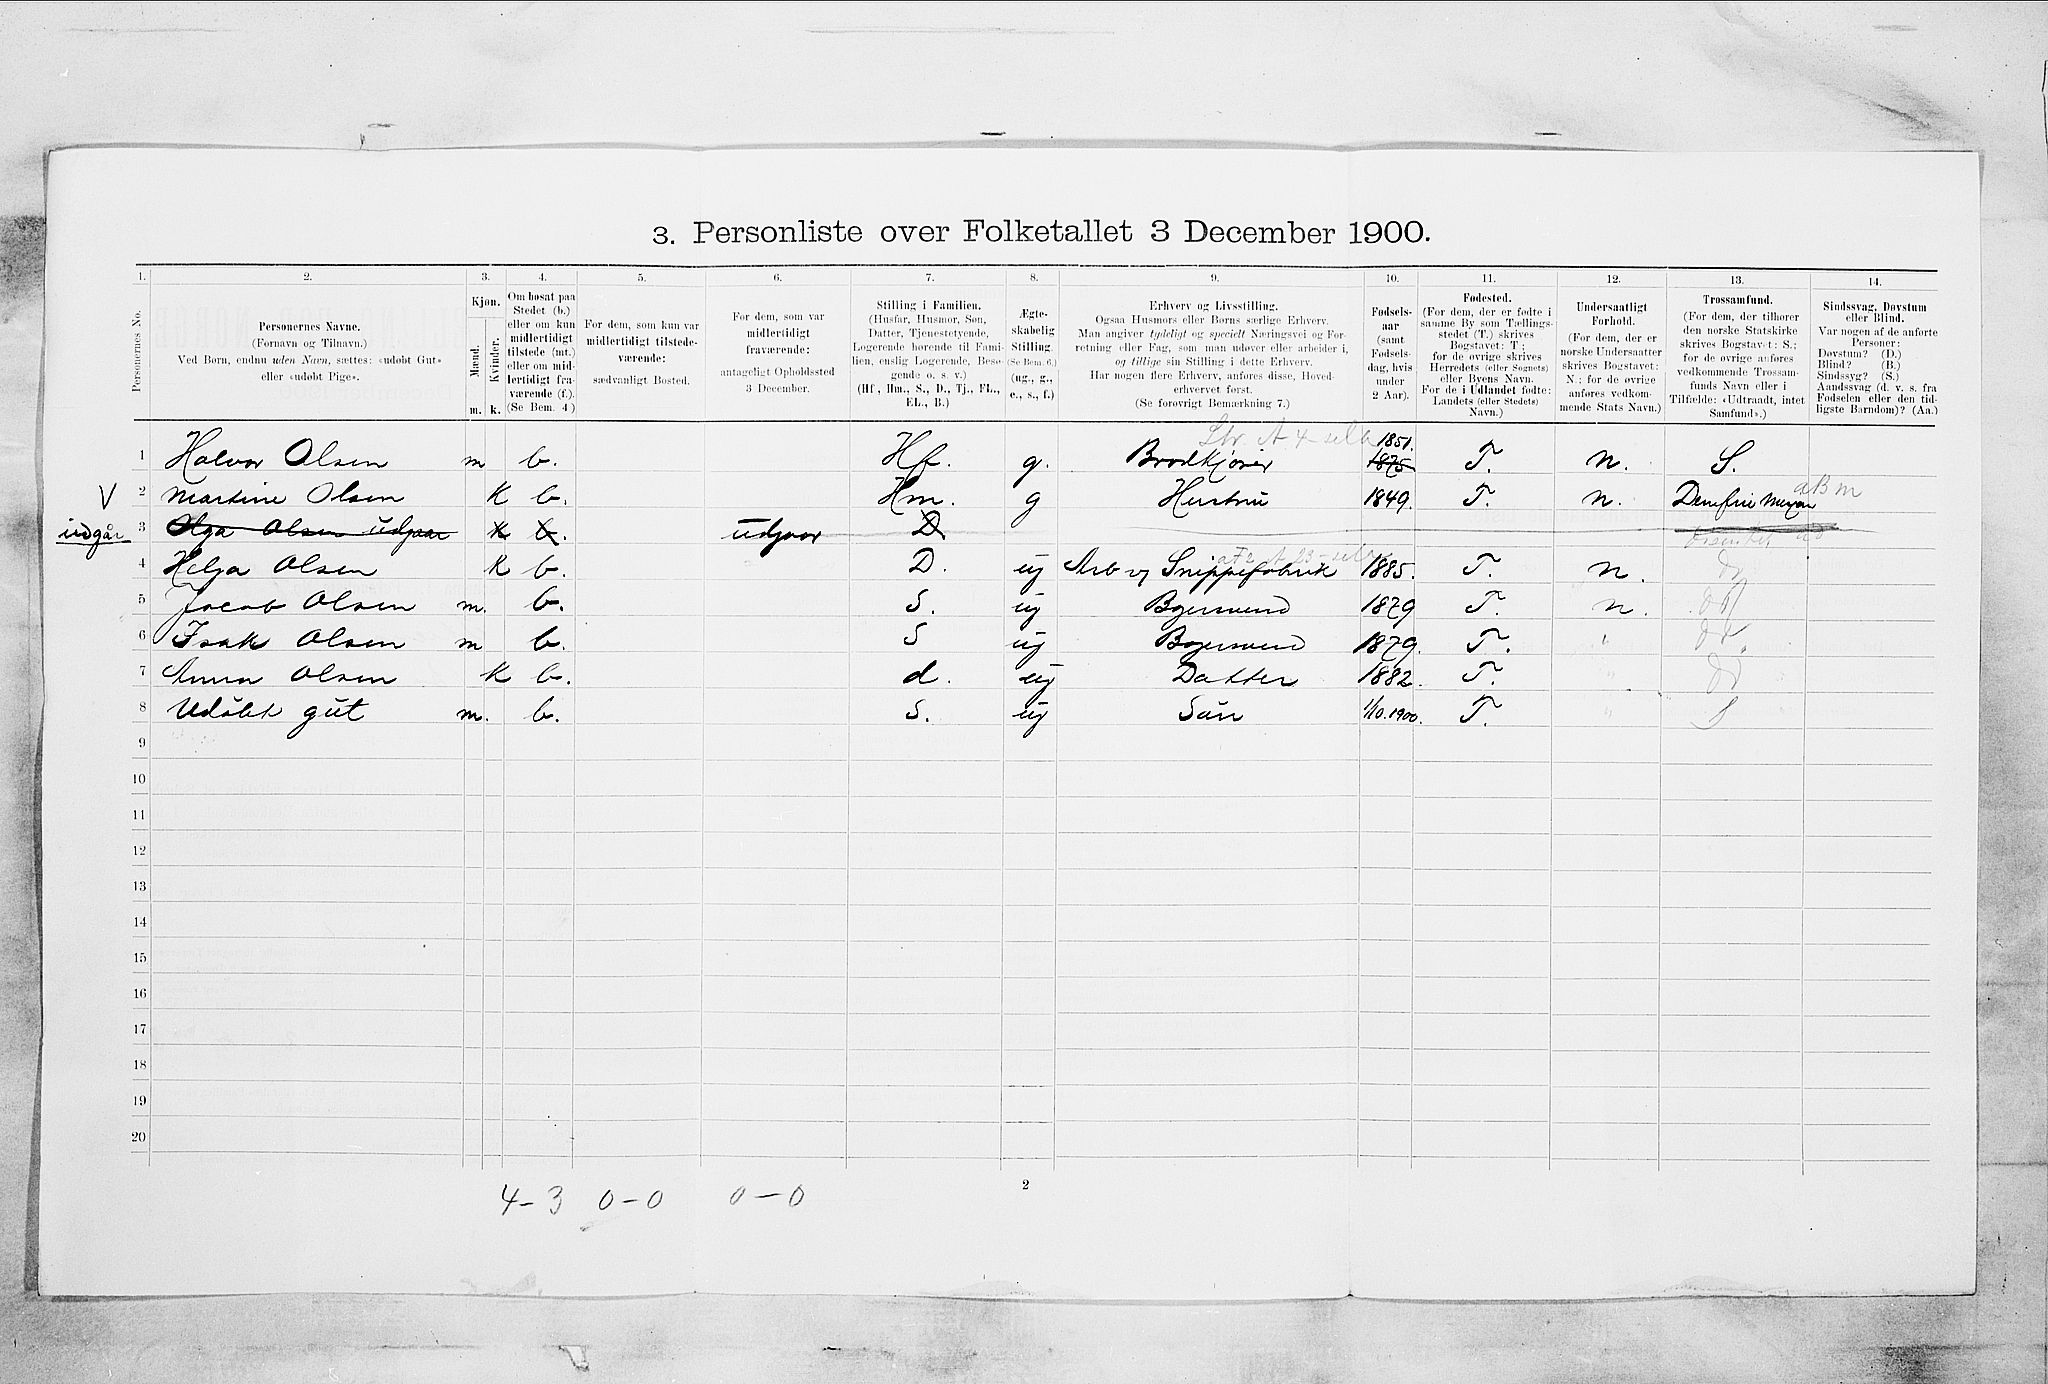 3. Personliste over Folketallet 3 December 1900.
1. 2. 3. 4. 5. 6. 7. 8. 9. 10. 11. 12. 13. 14.
Personernes No.
Personernes Navne.
(Fornavn og Tilnavn.)
Ved Børn, endnu uden Navn, sættes: «udøbt Gut»
eller «udøbt Pige».
Kjøn.
Mænd.
Kvinder.
m. k.
Om bosat paa
Stedet (b.)
eller om kun
midlertidigt
tilstede (mt.)
eller om mid-
lertidigt fra-
værende (f.).
(Se Bem. 4.)
For dem, som kun var
midlertidigt tilstede-
værende:
sædvanligt Bosted.
For dem, som var
midlertidigt
fraværende:
antageligt Opholdssted
3 December.
Stilling i Familien.
(Husfar, Husmor, Søn,
Datter, Tjenestetyende,
Logerende hørende til Fami-
lien, enslig Logerende, Besø-
gende o. s. v.)
(Hf., Hm., S., D., Tj., FL.,
EL., B.)
Ægte-
skabelig
Stilling.
(Se Bem. 6.)
(ug., g.,
e., s., f.)
Erhverv og Livsstilling.
Ogsaa Husmors eller Børns særlige Erhverv.
Man angiver tydeligt og specielt Næringsvei og For-
retning eller Fag, som man udøver eller arbeider i,
og tillige sin Stilling i dette Erhverv.
Har nogen flere Erhverv, anføres disse, Hoved-
erhvervet først.
(Se forøvrigt Bemærkning 7.)
Fødsels-
aar
(samt
Fødsels-
dag, hvis
under
2 Aar).
Fødested.
(For dem, der er fødte i
samme By som Tællings-
stedet (T.) skrives
Bogstavet: T.;
for de øvrige skrives
Herredets (eller Sognets)
eller Byens Navn.
For de i Udlandet fødte:
Landets (eller Stedets)
Navn.)
Undersaatligt
Forhold.
(For dem, der er
norske Undersaatter
skrives Bogstavet:
N.; for de øvrige
anføres vedkom-
mende Stats Navn.)
Trossamfund.
(For dem, der tilhører
den norske Statskirke
skrives Bogstavet: S.;
for de øvrige anføres
vedkommende Trossam-
funds Navn eller i
Tilfælde: «Udtraadt, intet
Samfund».)
Sindssvag, Døvstum
eller Blind.
Var nogen af de anførte
Personer:
Døvstum? (D.)
Blind? (B.)
Sindssyg? (S.)
Aandssvag (d. v. s. fra
Fødselen eller den tid-
ligste Barndom)? (Aa.)
1 Halvor Olsen m b. Hf. g. Brodkjører 1851. 1875 T. n. S.
V 2 Martine Olsen K b. Hm. g Hustru 1849. T. n.
udgår 3 Olga Olsen udgaar K b. udgaar D
4 Helga Olsen K b. D. ug Arb v Snippefabrik 1885. T. n. do
5 Jacob Olsen m. b. S. ug Bgersvend 1879 T. n. do
6 Isak Olsen m b. S ug Bagersvend 1879. T. " do
7 Anna Olsen K b. d. ug Datter 1882. T. " do
8 Udöbt gut m. b. S. ug Sön 1/10.1900. T. " S
9
10
11
12
13
14
15
16
17
18
19
20
4-3 0-0 0-0
2